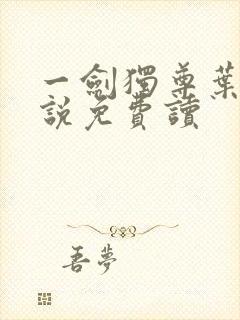 一劍獨尊葉
說免費讀
吾夢